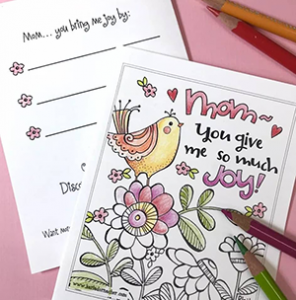 Mom... you bring me joy by:
Mom~
You give
me so much
Joy!
Want